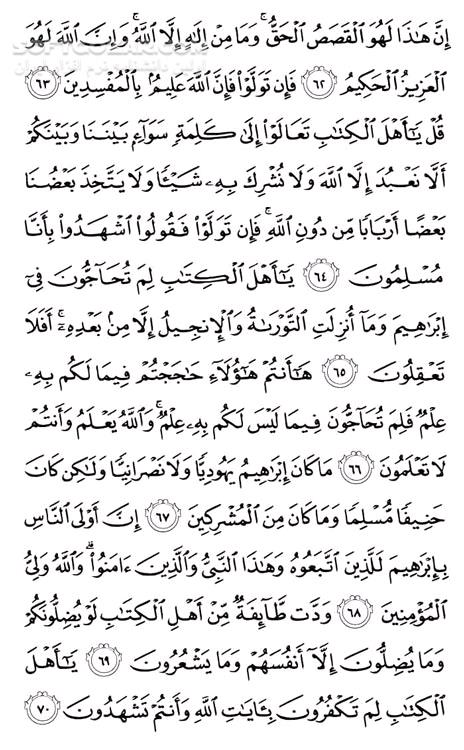 إِنَّ هَـٰذَا لَهُوَ ٱلْقَصَصُ ٱلْحَقُّ ۚ وَمَا مِنْ إِلَـٰهٍ إِلَّا ٱللَّهُ ۚ وَإِنَّ ٱللَّهَ لَهُوَ
ٱلْعَزِيزُ ٱلْحَكِيمُ ٦٢ فَإِن تَوَلَّوْا۟ فَإِنَّ ٱللَّهَ عَلِيمٌۢ بِٱلْمُفْسِدِينَ ٦٣
قُلْ يَـٰٓأَهْلَ ٱلْكِتَـٰبِ تَعَالَوْا۟ إِلَىٰ كَلِمَةٍ سَوَآءٍۭ بَيْنَنَا وَبَيْنَكُمْ
أَلَّا نَعْبُدَ إِلَّا ٱللَّهَ وَلَا نُشْرِكَ بِهِۦ شَيْـًٔا وَلَا يَتَّخِذَ بَعْضُنَا
بَعْضًا أَرْبَابًا مِّن دُونِ ٱللَّهِ ۚ فَإِن تَوَلَّوْا۟ فَقُولُوا۟ ٱشْهَدُوا۟ بِأَنَّا
مُسْلِمُونَ ٦٤ يَـٰٓأَهْلَ ٱلْكِتَـٰبِ لِمَ تُحَآجُّونَ فِىٓ
إِبْرَٰهِيمَ وَمَآ أُنزِلَتِ ٱلتَّوْرَىٰةُ وَٱلْإِنجِيلُ إِلَّا مِنۢ بَعْدِهِۦٓ ۚ أَفَلَا
تَعْقِلُونَ ٦٥ هَـٰٓأَنتُمْ هَـٰٓؤُلَآءِ حَـٰجَجْتُمْ فِيمَا لَكُم بِهِۦ
عِلْمٌ فَلِمَ تُحَآجُّونَ فِيمَا لَيْسَ لَكُم بِهِۦ عِلْمٌ ۚ وَٱللَّهُ يَعْلَمُ وَأَنتُمْ
لَا تَعْلَمُونَ ٦٦ مَا كَانَ إِبْرَٰهِيمُ يَهُودِيًّا وَلَا نَصْرَانِيًّا وَلَـٰكِن كَانَ
حَنِيفًا مُّسْلِمًا وَمَا كَانَ مِنَ ٱلْمُشْرِكِينَ ٦٧ إِنَّ أَوْلَى ٱلنَّاسِ
بِإِبْرَٰهِيمَ لَلَّذِينَ ٱتَّبَعُوهُ وَهَـٰذَا ٱلنَّبِىُّ وَٱلَّذِينَ ءَامَنُوا۟ ۗ وَٱللَّهُ وَلِىُّ
ٱلْمُؤْمِنِينَ ٦٨ وَدَّت طَّآئِفَةٌ مِّنْ أَهْلِ ٱلْكِتَـٰبِ لَوْ يُضِلُّونَكُمْ
وَمَا يُضِلُّونَ إِلَّآ أَنفُسَهُمْ وَمَا يَشْعُرُونَ ٦٩ يَـٰٓأَهْلَ
ٱلْكِتَـٰبِ لِمَ تَكْفُرُونَ بِـَٔايَـٰتِ ٱللَّهِ وَأَنتُمْ تَشْهَدُونَ ٧٠